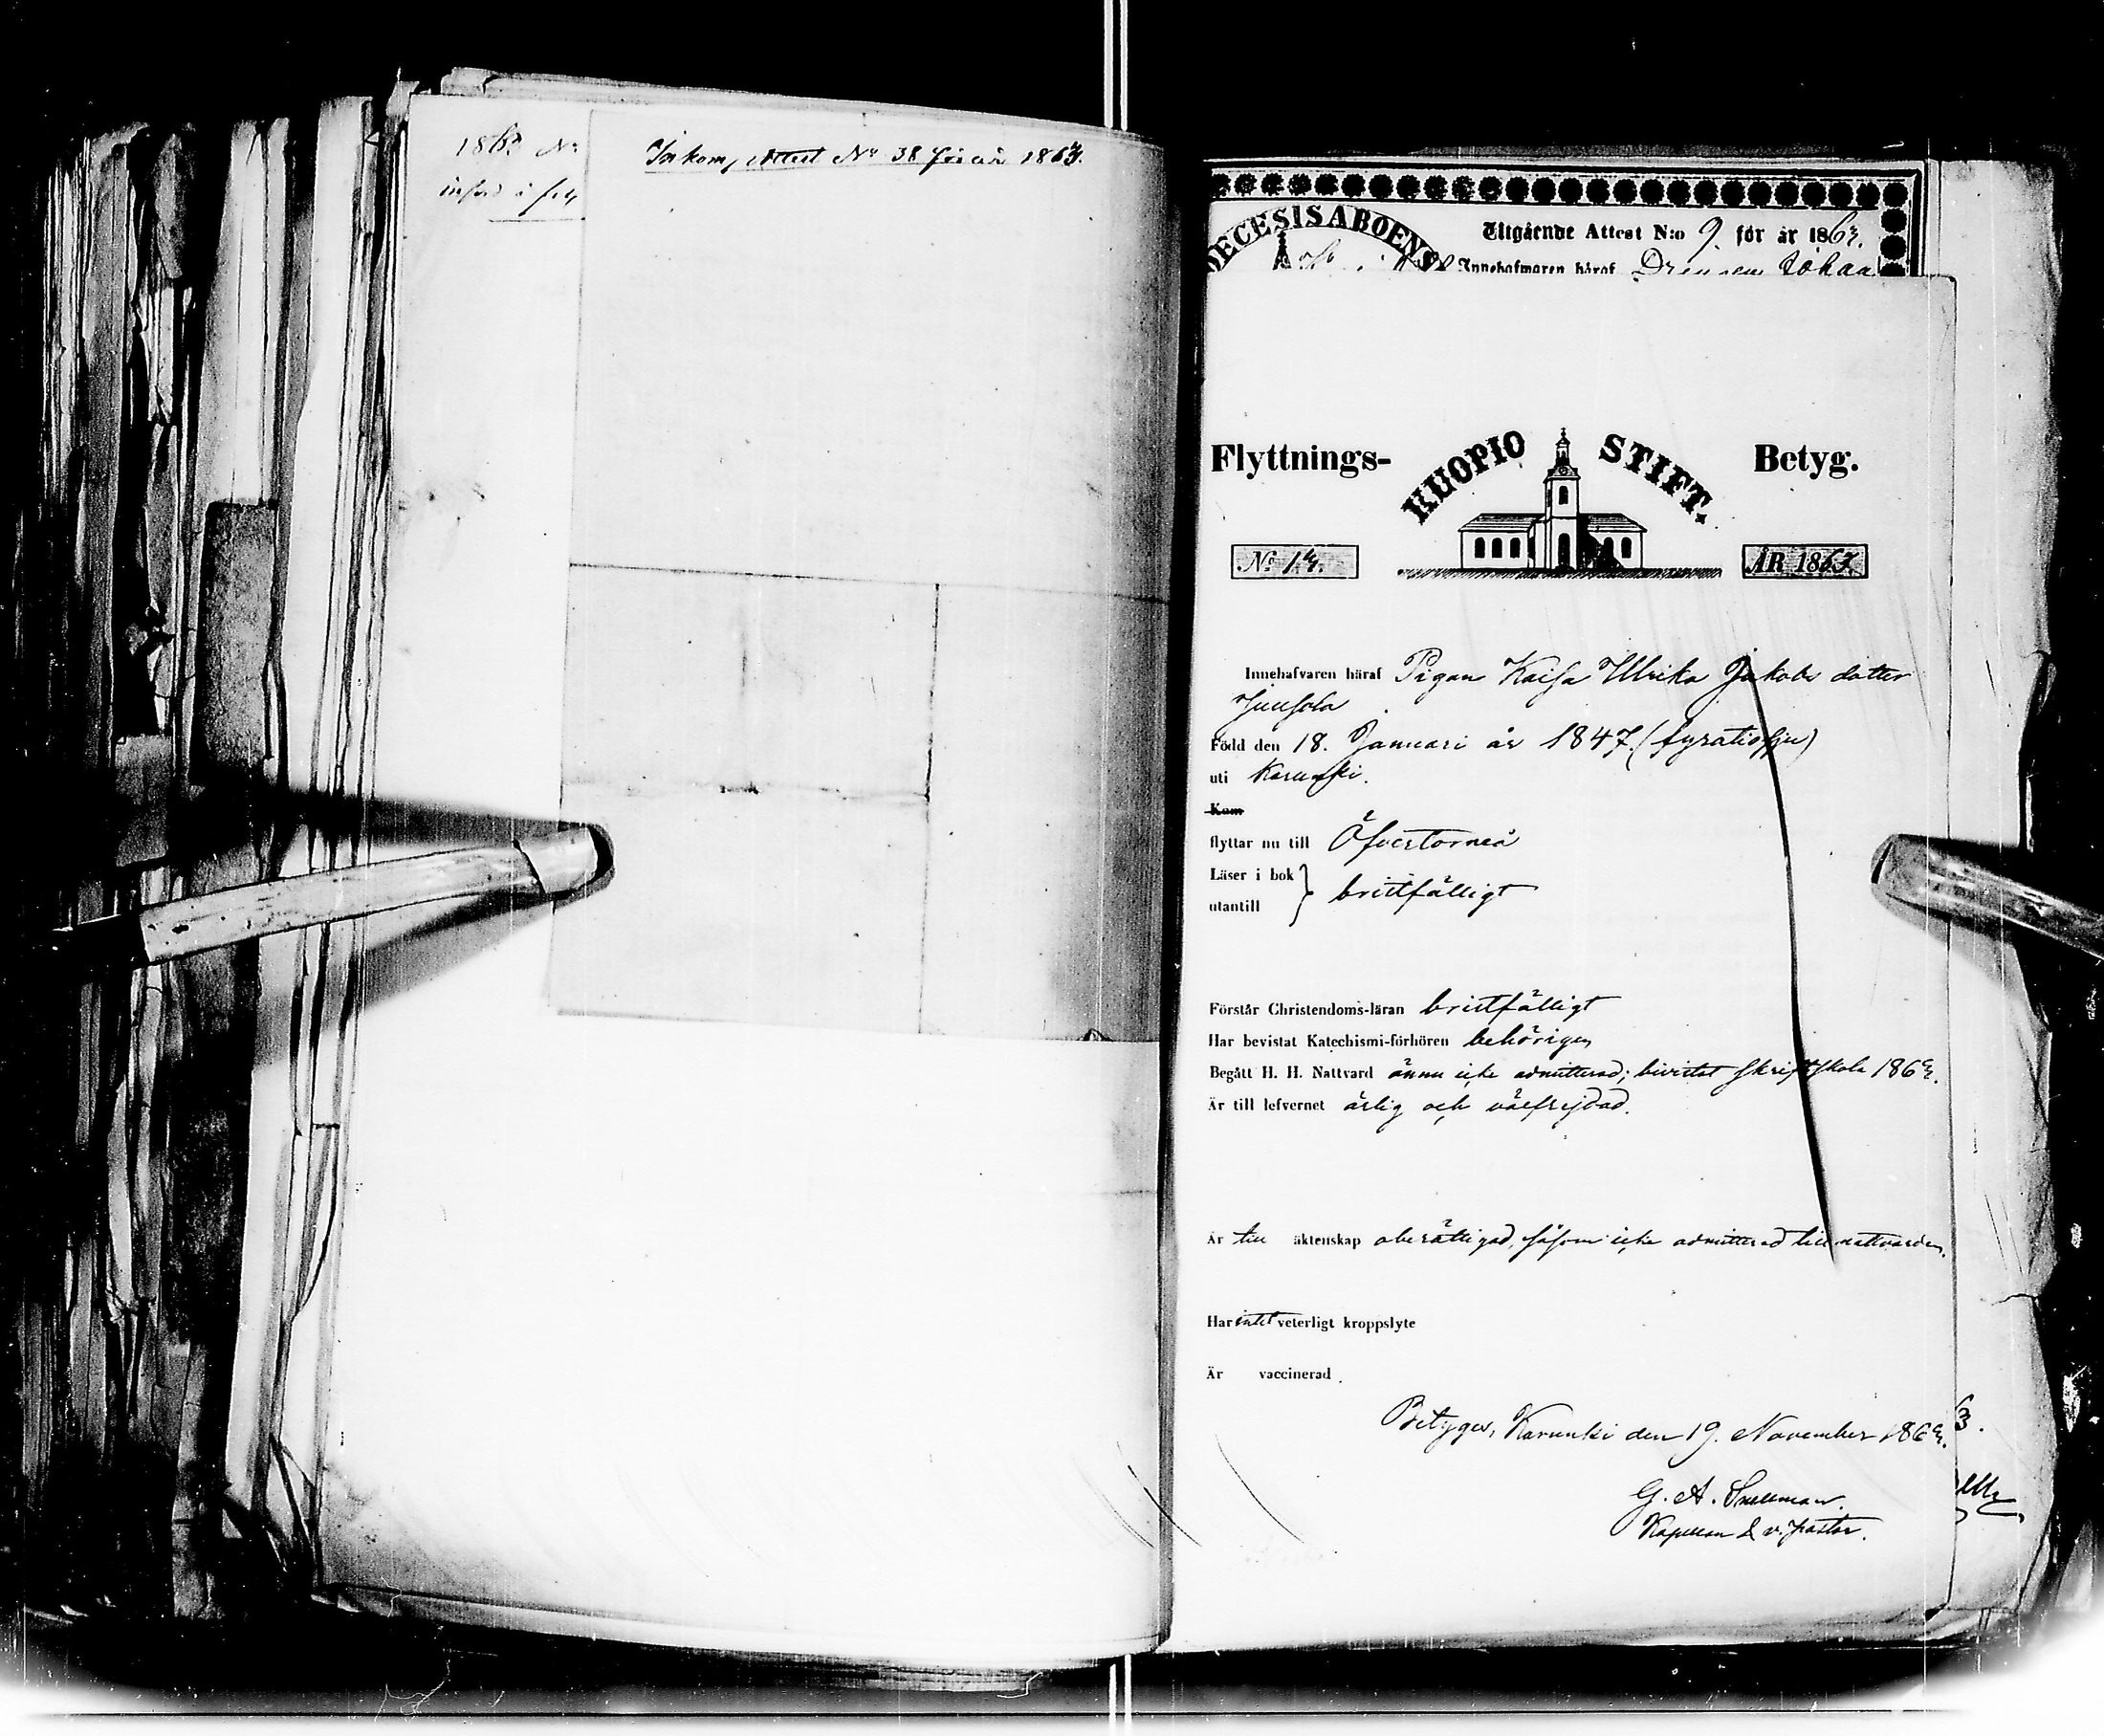 1863 No
Inkom, Attest No 38 för år 1863.
införd å
DECESIS ABOENS
Utgående Attest N:o 9. för år 1863.
Innehafwaren häraf Drängen Johan
Flyttnings- KUOPIO STIFT. Betyg.
No 14. ÅR 1863.
Innehafvaren häraf Pigan Kaisa Ulrika Jakobs dotter
Född den 18. Januari år 1847. (fyratiosju)
uti Karunki.
Kom
flyttar nu till Öfvertorneå
Läser i bok
utantill } bristfälligt
Förstår Christendoms-läran bristfälligt
Har bevistat Katechismi-förhören behörigen
Begått H. H. Nattvard ännu icke admitterad; bivistat skriftskola 1863.
Är till lefvernet ärlig och välfrejdad.
Är till äktenskap oberättigad, såsom icke admitterad till nattvarden.
Har intet veterligt kroppslyte
Är vaccinerad.
Betygas, Karunki den 19. November 1863.
G. A. Snellman.
Kapellan & v. pastor.